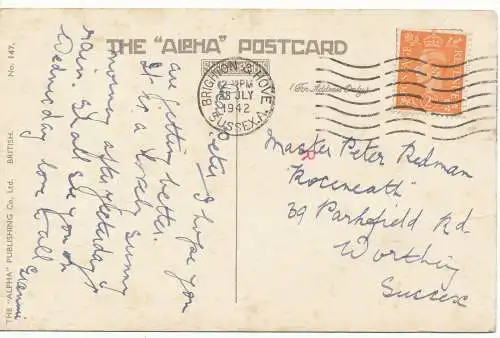 THE "ALPHA" POSTCARD
No. 147.
THE "ALPHA" PUBLISHING Co., Ltd. BRITISH.
(For Address Only)
BRIGHTON & HOVE
12-PM
28 JLY
1942
SUSSEX
Peter, I hope you
are getting better.
It is a lovely sunny
morning after yesterday's
rain. Shall see you on
Wednesday love to all
Grannie
Master Peter Redman
"Roseneath"
39 Parkfield Rd.
Worthing
Sussex